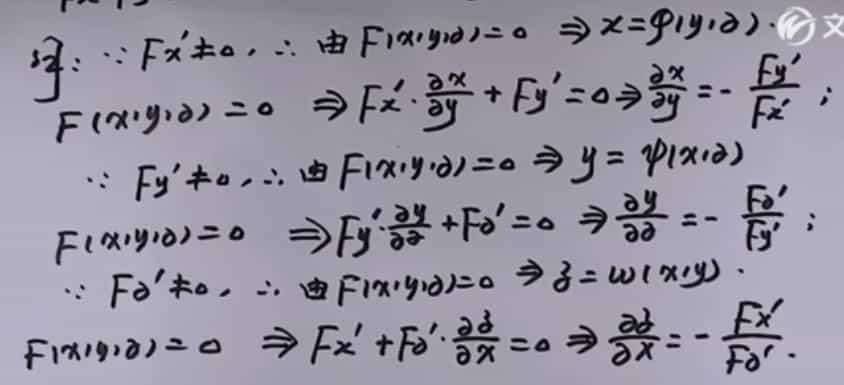 证: ∵ Fx′≠0, ∴ 由F(x,y,z)=0 ⇒ x=φ(y,z).
F(x,y,z)=0 ⇒ Fx′·∂x/∂y + Fy′=0 ⇒ ∂x/∂y = - Fy′/Fx′ ;
∵ Fy′≠0, ∴ 由F(x,y,z)=0 ⇒ y=ψ(x,z)
F(x,y,z)=0 ⇒ Fy′·∂y/∂z + Fz′=0 ⇒ ∂y/∂z = - Fz′/Fy′ ;
∵ Fz′≠0, ∴ 由F(x,y,z)=0 ⇒ z=ω(x,y).
F(x,y,z)=0 ⇒ Fx′+Fz′·∂z/∂x=0 ⇒ ∂z/∂x = - Fx′/Fz′.
文